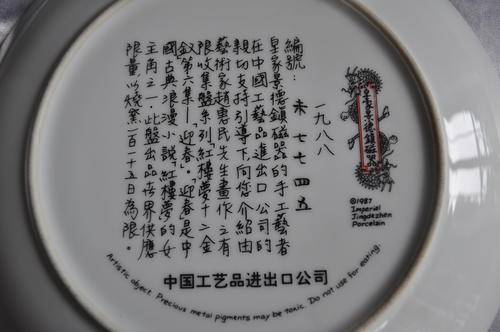 皇家景德鎮磁器
©1987
Imperial
Jingdezhen
Porcelain
編號：
一九八八
未 七七四五
皇家景德鎮磁器的手工藝者
在中國工藝品進出口公司的
親切支持引導下，向您介紹由
藝術家趙惠民先生畫作之有
限收集盤系列「紅樓夢十二金
釵」第六集—迎春。「迎春」是中
國古典浪漫小說「紅樓夢」的女
主角之一．此盤出品世界供應
限量以燒窯一百一十五日為限。
中国工艺品进出口公司
Artistic object. Precious metal pigments may be toxic. Do not use for eating.